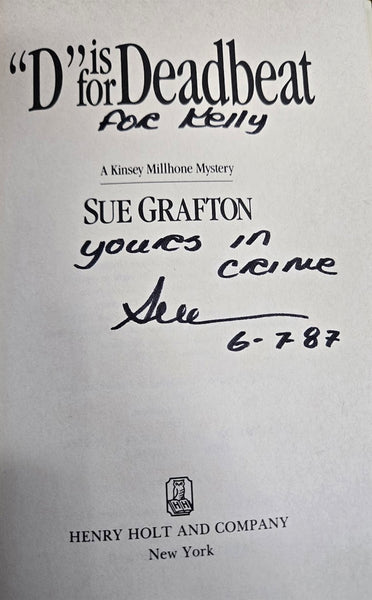 "D" is for Deadbeat
for Kelly
A Kinsey Millhone Mystery
SUE GRAFTON
yours in
crime
Sue
6-7 87
HENRY HOLT AND COMPANY
New York